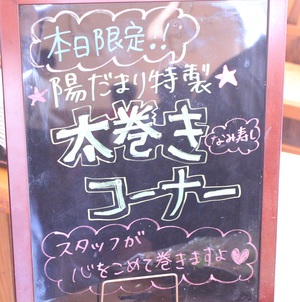 本日限定!!
★陽だまり特製★
太巻き
なみ寿し
コーナー
スタッフが
心をこめて巻きますよ♥